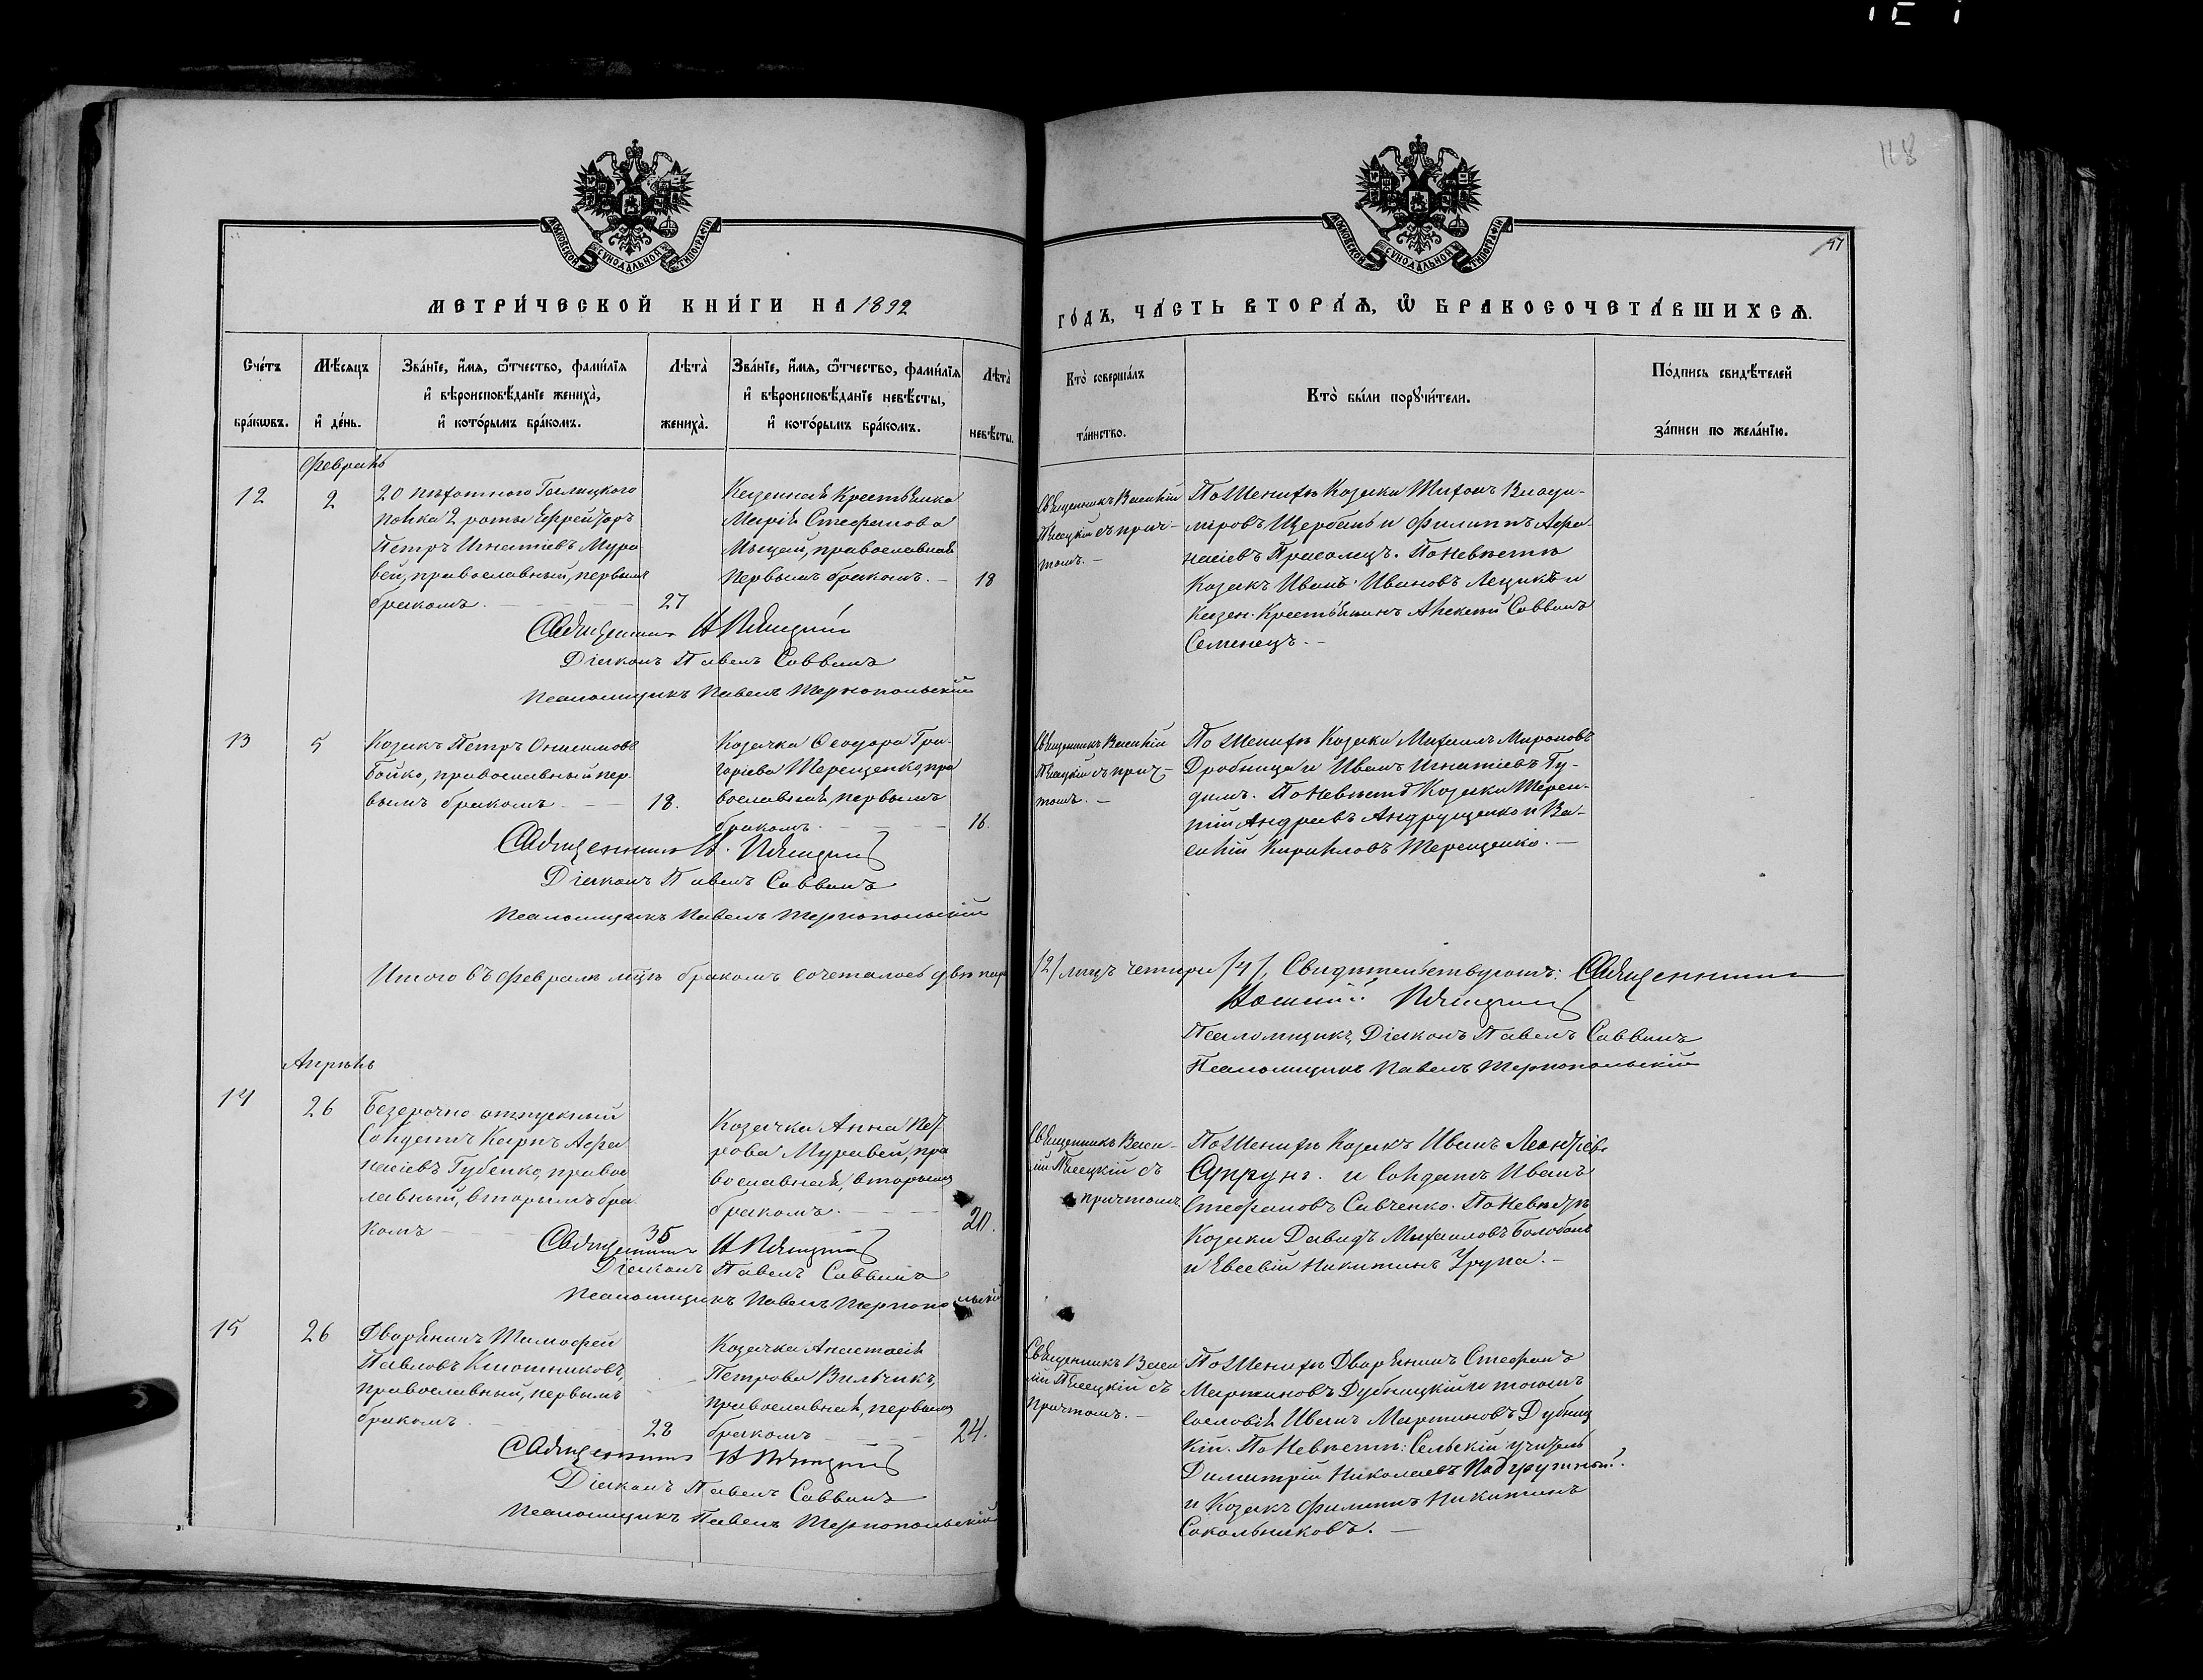 118
МОСКОВСКОЙ СѴНОДАЛЬНОЙ ТИПОГРАФІИ
МОСКОВСКОЙ СѴНОДАЛЬНОЙ ТИПОГРАФІИ
97
МЕТРИ́ЧЕСКОЙ КНИ́ГИ НА 1892
ГО́ДЪ, ЧА́СТЬ ВТОРА́Ѧ, Ѽ БРАКОСОЧЕТА́ВШИХСѦ.
Сче́тъ бра́кѡвъ.
Мѣ́сѧцъ и҆ де́нь.
Зва́нїе, и҆́мѧ, ѻ҆́тчество, фами́лїѧ
и҆ вѣроисповѣ́данїе жениха̀,
и҆ кото́рымъ бра́комъ.
Лѣта̀ жениха̀.
Зва́нїе, и҆́мѧ, ѻ҆́тчество, фами́лїѧ
и҆ вѣроисповѣ́данїе невѣ́сты,
и҆ кото́рымъ бра́комъ.
Лѣта̀ невѣ́сты.
Кто̀ соверша́лъ
та́инство.
Кто̀ бы́ли порꙋчи́тели.
По́дпись свидѣ́телей
за́писи по жела́нїю.
Февраль
12
2
20 пѣхотнаго Галицкаго
полка 2 роты Ефрейторъ
Петръ Игнатіевъ Мура
вей, православный, первымъ
бракомъ. —
27
Казенная Крестьянка
Марія Стефанова
Мыцай, православная
первымъ бракомъ. —
18
Священникъ Василій
Пясецкій съ прич-
томъ. —
По Женихѣ Козаки Тихонъ Влади-
міровъ Щербань и Филиппъ Афа-
насіевъ Прасолецъ. По Невѣстѣ
Козакъ Иванъ Ивановъ Лещикъ и
Казен. Крестьянинъ Алексѣй Саввинъ
Семенецъ. —
Священникъ В Пясецкій
Діаконъ Павелъ Саввинъ
Псаломщикъ Павелъ Тернопольскій
13
5
Козакъ Петръ Онисимовъ
Бойко, православный пер-
вымъ бракомъ —
18.
Козачка Ѳеодора Гри-
горіева Терещенко, пра
вославная, первымъ
бракомъ. —
16.
Священникъ Василій
Пясецкій съ прич-
томъ. —
По Женихѣ Козаки Михаилъ Мироновъ
Дробница и Иванъ Игнатіевъ Гу-
димъ. По Невѣстѣ Козаки Терен-
тій Андреевъ Андрущенко и Ва-
силій Кириловъ Терещенко. —
Священникъ В. Пясецкій
Діаконъ Павелъ Саввинъ
Псаломщикъ Павелъ Тернопольскій
Итого въ Февралѣ м҃цѣ бракомъ сочеталось двѣ пары /2/ лицъ четыре /4/, Свидѣтельствуютъ: Священникъ
Василій Пясецкій
Псаломщикъ, Діаконъ Павелъ Саввинъ
Псаломщикъ Павелъ Тернопольскій
Апрѣль
14
26
Безсрочно отпускный
Солдатъ Карпъ Афа
насіевъ Губенко, правос
лавный, вторымъ бра-
комъ —
35
Козачка Анна Пет
рова Муравей, пра
вославная, вторымъ
бракомъ. —
20.
Священникъ Васи-
лій Пясецкій съ
причтомъ
По Женихѣ Козакъ Иванъ Леонтіевъ
Супрунъ. и Солдатъ Иванъ
Стефановъ Савченко. По Невѣстѣ
Козаки Давидъ Михаиловъ Болобанъ
и Евсевій Никитинъ Урупа. —
Священникъ В Пясецкій
Діаконъ Павелъ Саввинъ
Псаломщикъ Павелъ Тернопольскій
15
26
Дворянинъ Тимофей
Павловъ Ключниковъ,
православный, первымъ
бракомъ. —
28
Козачка Анастасія
Петрова Вильчикъ,
православная, первымъ
бракомъ —
24.
Священникъ Васи
лій Пясецкій съ
Причтомъ. —
По Женихѣ Дворянинъ Стефанъ
Мартиновъ Дубницкій и тогожъ
сословія Иванъ Мартиновъ Дубниц
кій. По Невѣстѣ: Сельскій учитель
Димитрій Николаевъ Подгрушный
и Козакъ Филиппъ Никитинъ
Сокольниковъ. —
Священникъ В Пясецкій
Діаконъ Павелъ Саввинъ
Псаломщикъ Павелъ Тернопольскій